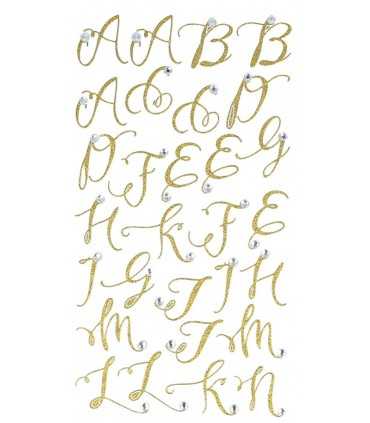 A A B B
A C C D
D F E E G
H K F E
I G I H
M J M
L L K N